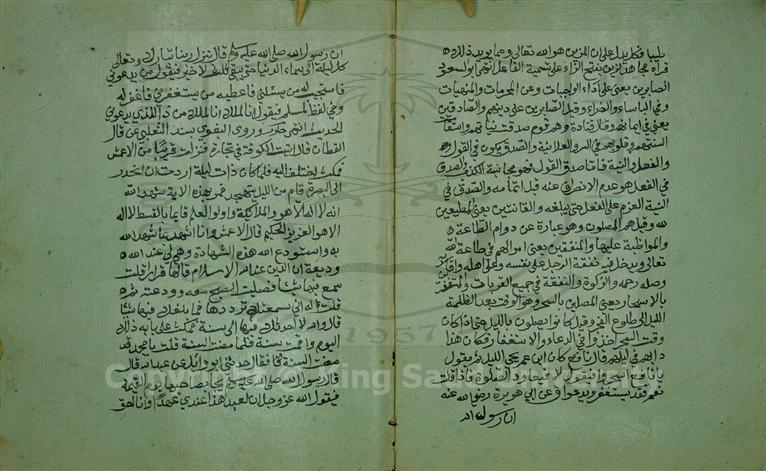 عليها فكل يدل على ان المزين هو الله تعالى ومما يويد ذلك
قراة مجاهد زين بفتح الزاء على تسمية الفاعل انتهى ابو السعود
الصابرين يعني على اداء الواجبات وعن المحرمات والمنهيات
وفي الباساء والضراء وقيل الصابرين على دينهم والصادقين
يعني في ايمانهم وقال قتادة وهم قوم صدقت نياتهم واستقامت
السنتهم وقلوبهم في السر والعلانية والصدق يكون في القول
والفعل والنية فاما صدق القول فهو مجانبة الكذب والصدق
في الفعل هو عدم الانصراف عنه قبل اتمامه والصدق في
النية العزم على الفعل حتى يبلغه والقانتين يعني المطيعين
لله وقيل هم المصلون وهو عبارة عن دوام الطاعة
والمواظبة عليها والمنفقين يعني اموالهم في طاعة الله
تعالى ويدخل فيه نفقة الرجل على نفسه وعلى اهله واقاربه
وصلة رحمه والزكوة والنفقة في جميع القربات والمستغفرين
بالاسحار يعني المصلين بالسحر وهو الوقت بعد الظلمة
الليل الى طلوع الفجر وقيل كانوا يصلون بالليل حتى اذا كان
وقت السحر اخذوا في الدعاء والاستغفار فكان هذا
دابهم في ليلهم قال نافع كان ابن عمر يحيي الليل ثم يقول
يا نافع اسحرنا فاقول لا فيعاود الصلوة فاذا قلت
نعم قعد يستغفر ويدعو ق عن ابي هريرة رضي الله عنه
ان رسول الله
ان رسول الله صلى الله عليه وسلم قال ينزل ربنا تبارك وتعالى
كل ليلة الى سماء الدنيا حين يبقى ثلث الاخير فيقول من يدعوني
فاستجيب له من يسئلني فاعطيه من يستغفرني فاغفر له
وفي لفظ المسلم فيقول انا الملك انا الملك من ذا الذي يدعوني
الحديث انتهى وروى البغوي بسند الثعلبي عن قال
القطان قال اتيت الكوفة في تجارة فنزلت قريبا من الاعمش
فكنت اختلف اليه فلما كان ذات ليلة اردت ان انحدر
الى البصرة قام من الليل يتهجد فمر بهذه الاية شهد الله
انه لا اله الا هو والملائكة واولوا العلم قايما بالقسط لا اله
الا هو العزيز الحكيم قال الاعمش وانا اشهد بما شهد الله
به واستودع الله هذه الشهادة وهي لي عند الله
وديعة ان الدين عند الله الاسلام قالها مرارا قلت
سمع فيها شيئا فصليت الصبح معه وودعته ثم
قلت له اني سمعتك ترددها فما بلغك فيها شيئا
قال والله لا احدثك فيها الى سنة فكتبت على بابه ذلك
اليوم واقمت سنة فلما مضت السنة قلت يا ابا محمد قد
مضت السنة قال حدثني ابو وائل عن عبد الله قال
قال رسول الله صلى الله عليه وسلم يجاء بصاحبها يوم القيمة
فيقول الله عز وجل ان لعبدي هذا عندي عهدا وانا احق
1957
Copyright © King Saud University